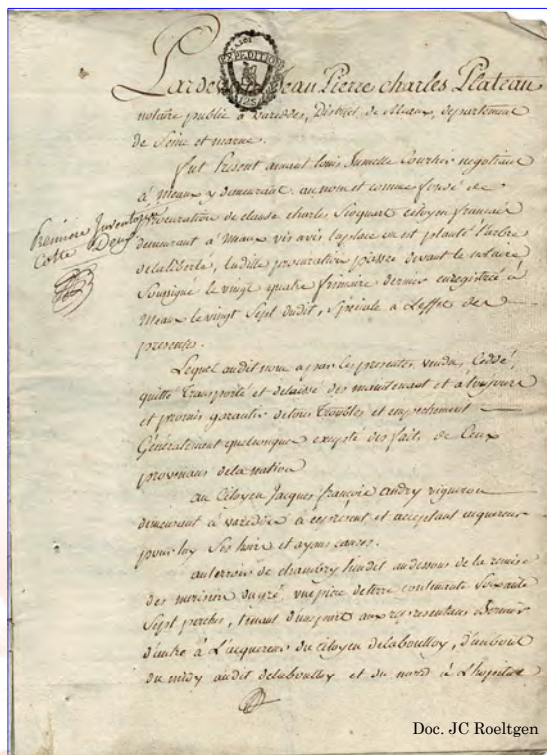 Pardevant Jean Pierre charles Plateau
notaire public à Varedde, District de Meaux, département
de Seine et marne.
fut Présent aimant Louis Jumelle Courtier negotiant
à Meaux y demeurant au nom et comme fondé de
procuration de claude charles citoyen francais
demeurant à Meaux vis avis la place ou est planté l'arbre
de la liberté, Ladille procuration passée devant le notaire
Soussigné le vingt quatre frimaire dernier enregistrée à
Meaux le vingt Sept dudit, Spéciale a L'effet des
presentes.
Premiere Inventoriée
Cotte Deux
Lequel audit nom a par les presentes, vendu, Ceddé,
quitté Transporté et delaissé des maintenant et à toujours
et promis garantir de tous Troubles et empechement
Généralement quelconque excepté des faits de Ceux
provenans de la nation
au Citoyen Jacques françois andry vigneron
demeurant à varedde à ce present et acceptant acquereur
pour luy Ses hoirs et ayans causes.
au terroir de chambry lieudit audessous de la remise
des merisiers, une piece de terre contenante Soixante
Sept perches, tenant d'une part aux representans Bernier
d'autre à L'acquereur du citoyen delaboulloy, d'un bout
du midy audit delaboulloy et du nord à L'hopital
Doc. JC Roeltgen